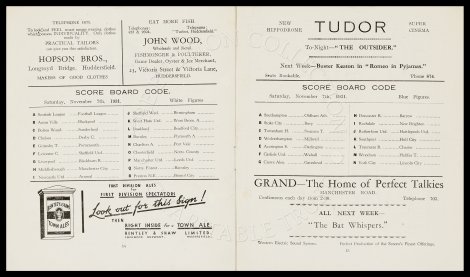 TELEPHONE 1870.
PRACTICAL TAILORS
HOPSON BROS.,
Longroyd Bridge, Huddersfield.
MAKERS OF GOOD CLOTHES
EAT MORE FISH.
JOHN WOOD,
Wholesale and Retail
FISHMONGER & POULTERER,
Game Dealer, Oyster & Ice Merchant,
23, Victoria Street & Victoria Lane,
HUDDERSFIELD.
SCORE BOARD CODE.
Saturday, November 7th, 1931. White Figures
Scottish League Football League
Aston Villa Blackpool
Bolton Wand. Sunderland
Chelsea Derby C.
Grimsby T. Portsmouth
Leicester C. Sheffield Utd.
Liverpool Blackburn R.
Middlesbrough Manchester C.
Newcastle Utd. Arsenal
Sheffield Wed. Birmingham
West Ham Utd. West Brom. A.
Bradford Bradford City
Burnley Plymouth A.
Charlton A. Port Vale
Chesterfield Notts County
Manchester Utd. Leeds Utd.
Notts Forest Barnsley
Preston N.E. Bristol City
FIRST DIVISION ALES
for
FIRST DIVISION SPECTATORS
Look out for this sign!
THEN
RIGHT INSIDE for a TOWN ALE.
BENTLEY & SHAW LIMITED,
HUDDERSFIELD.
BENTLEY & SHAW
TOWN ALES
NEW
HIPPODROME
TUDOR
SUPER
CINEMA
To-Night—"THE OUTSIDER."
Next Week—Buster Keaton in "Romeo in Pyjamas."
Seats Bookable.
SCORE BOARD CODE.
Saturday, November 7th, 1931. Blue Figures.
Southampton Oldham Ath.
Stoke City Bury
Tottenham H. Swansea T.
Wolverhampton Millwall
Accrington S. Darlington
Carlisle Utd. Walsall
Crewe Alex. Gateshead
Doncaster R. Barrow
Halifax T. Hartlepools
Rotherham U. New Brighton
Southport Hull City
Tranmere R. Chester
Wrexham Rochdale
York City Lincoln City
GRAND—The Home of Perfect Talkies
MANCHESTER ROAD.
Continuous each day from 2-30. Telephone 702.
ALL NEXT WEEK—
"The Bat Whispers."
Western Electric Sound System. Perfect Production of the Screen's Finest Offerings.